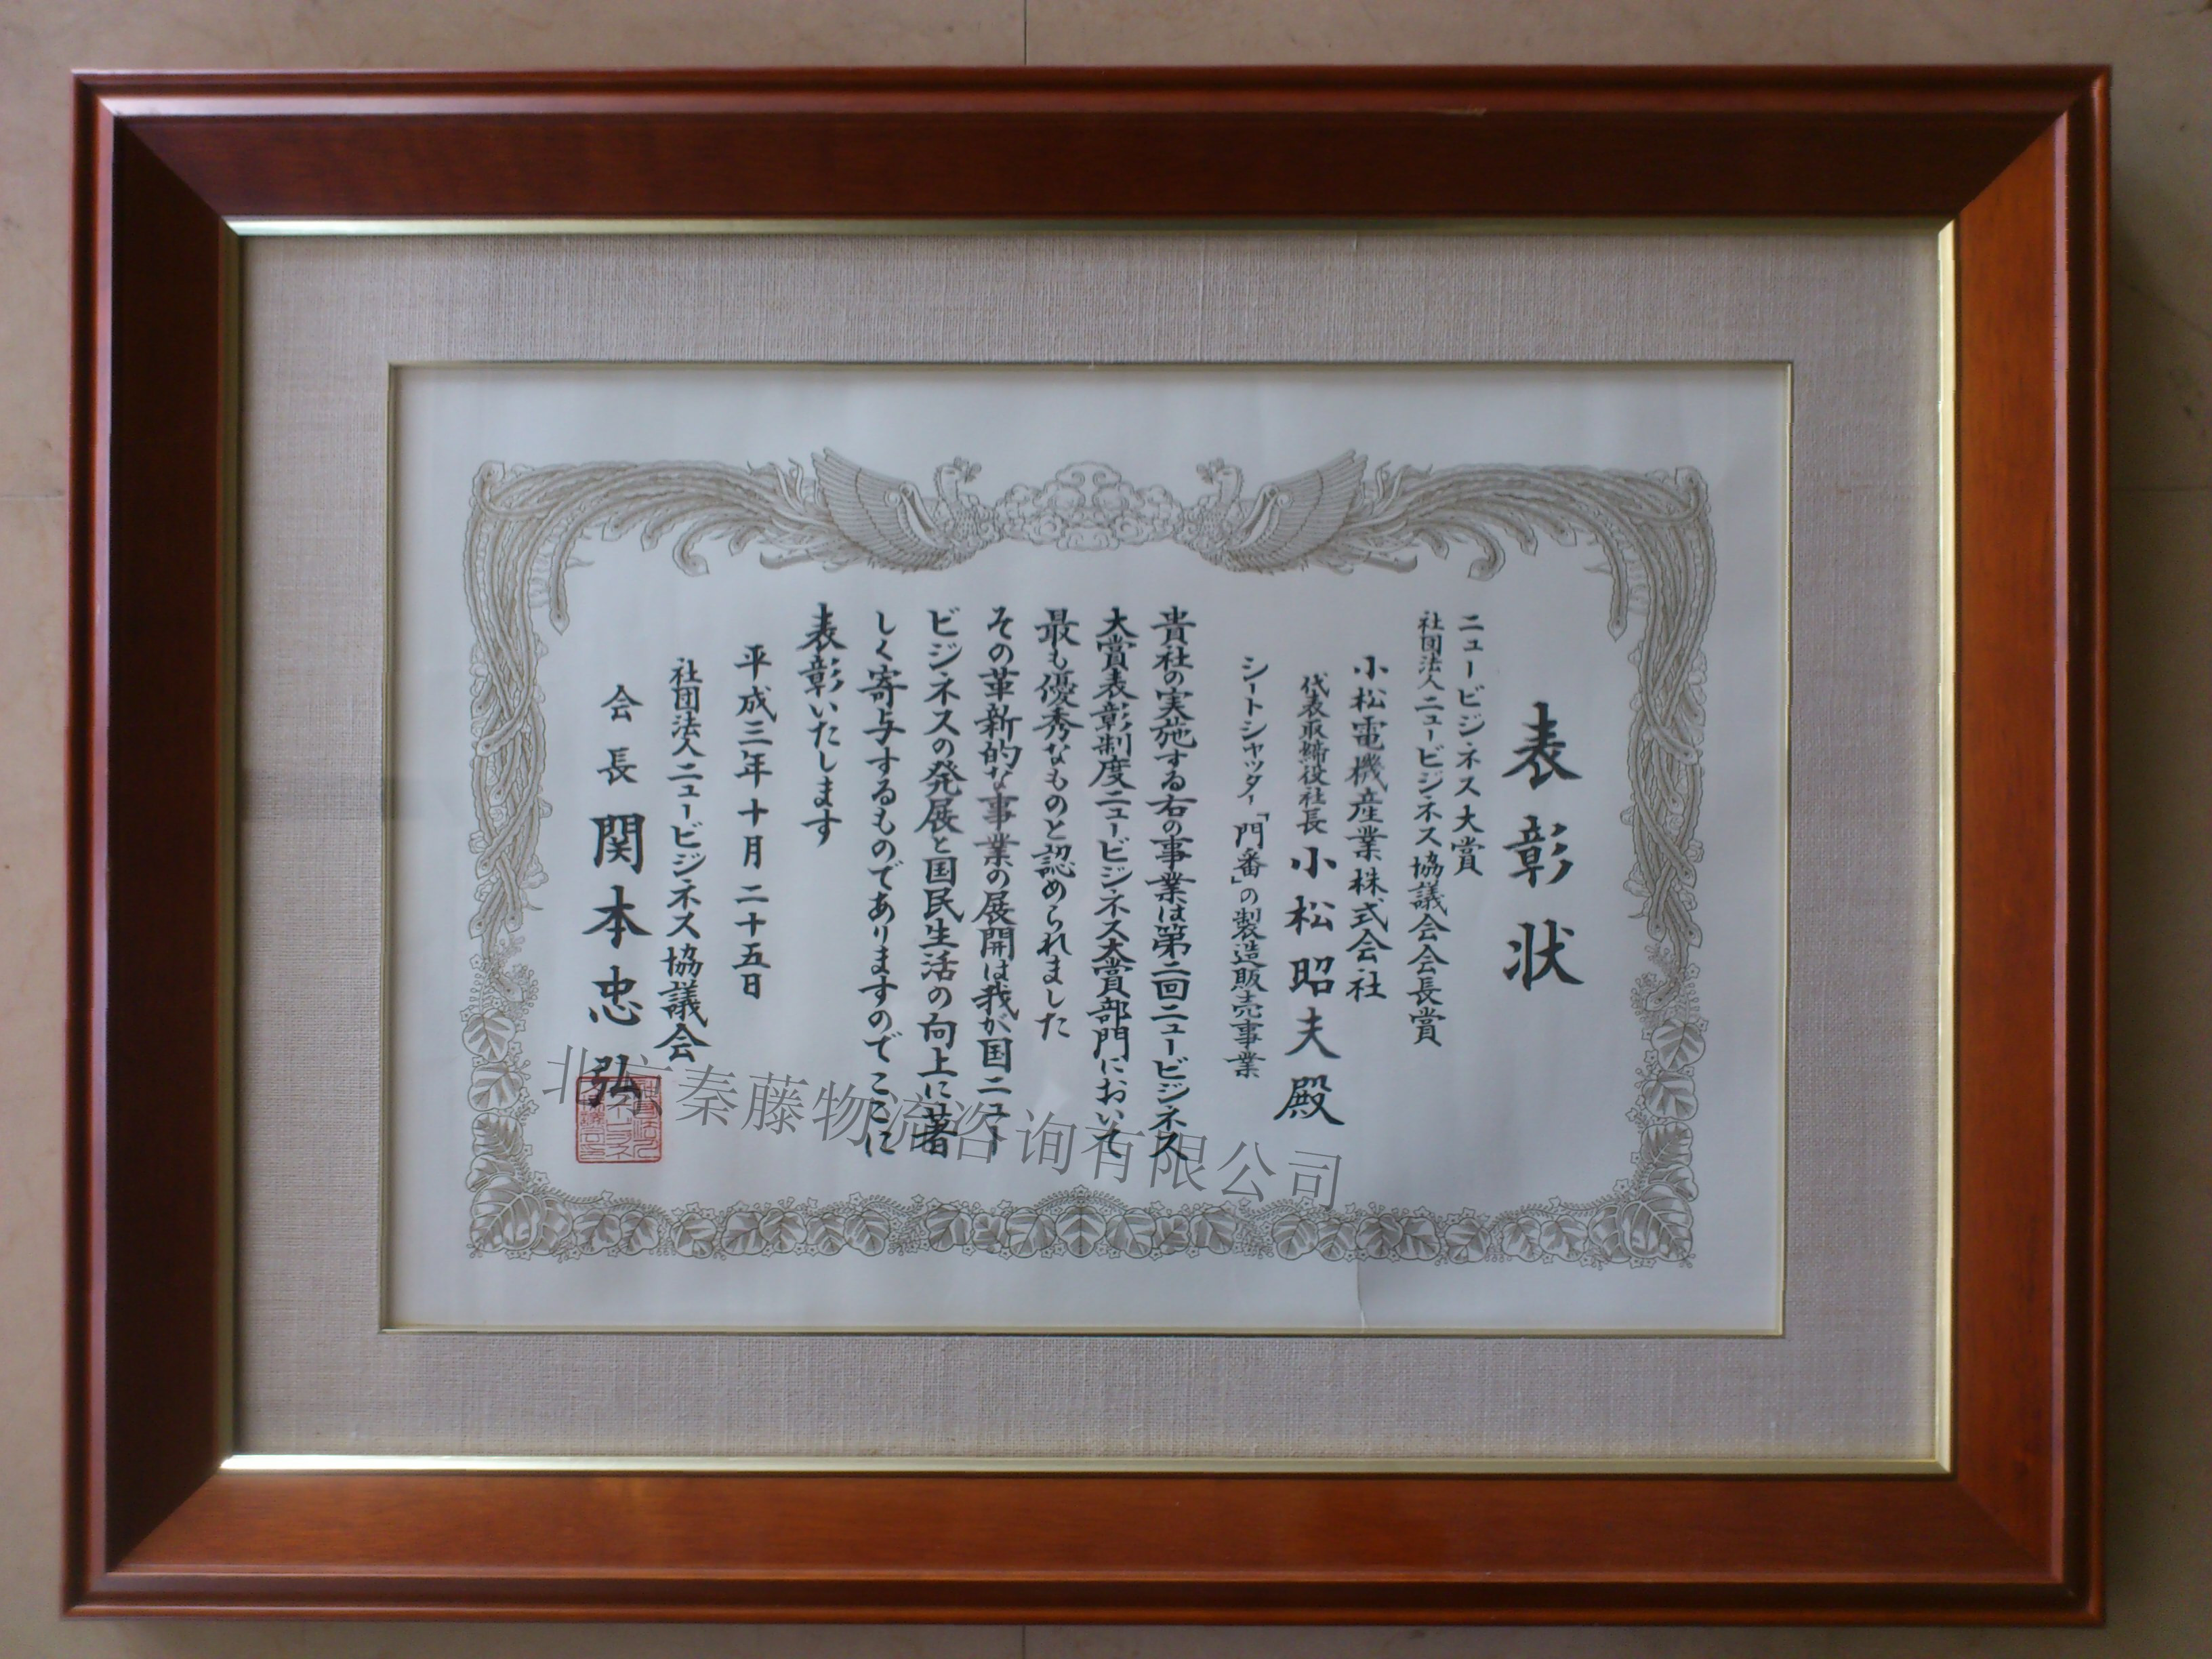 表彰状
ニュービジネス大賞
社団法人ニュービジネス協議会会長賞
小松電機産業株式会社
代表取締役社長 小松昭夫殿
シートシャッター「門番」の製造販売事業
貴社の実施する右の事業は第二回ニュービジネス
大賞表彰制度ニュービジネス大賞部門において
最も優秀なものと認められました
その革新的な事業の展開は我が国ニュー
ビジネスの発展と国民生活の向上に著
しく寄与するものでありますのでここに
表彰いたします
平成三年十月二十五日
社団法人ニュービジネス協議会
会長 関本忠弘
北京秦藤物流咨询有限公司